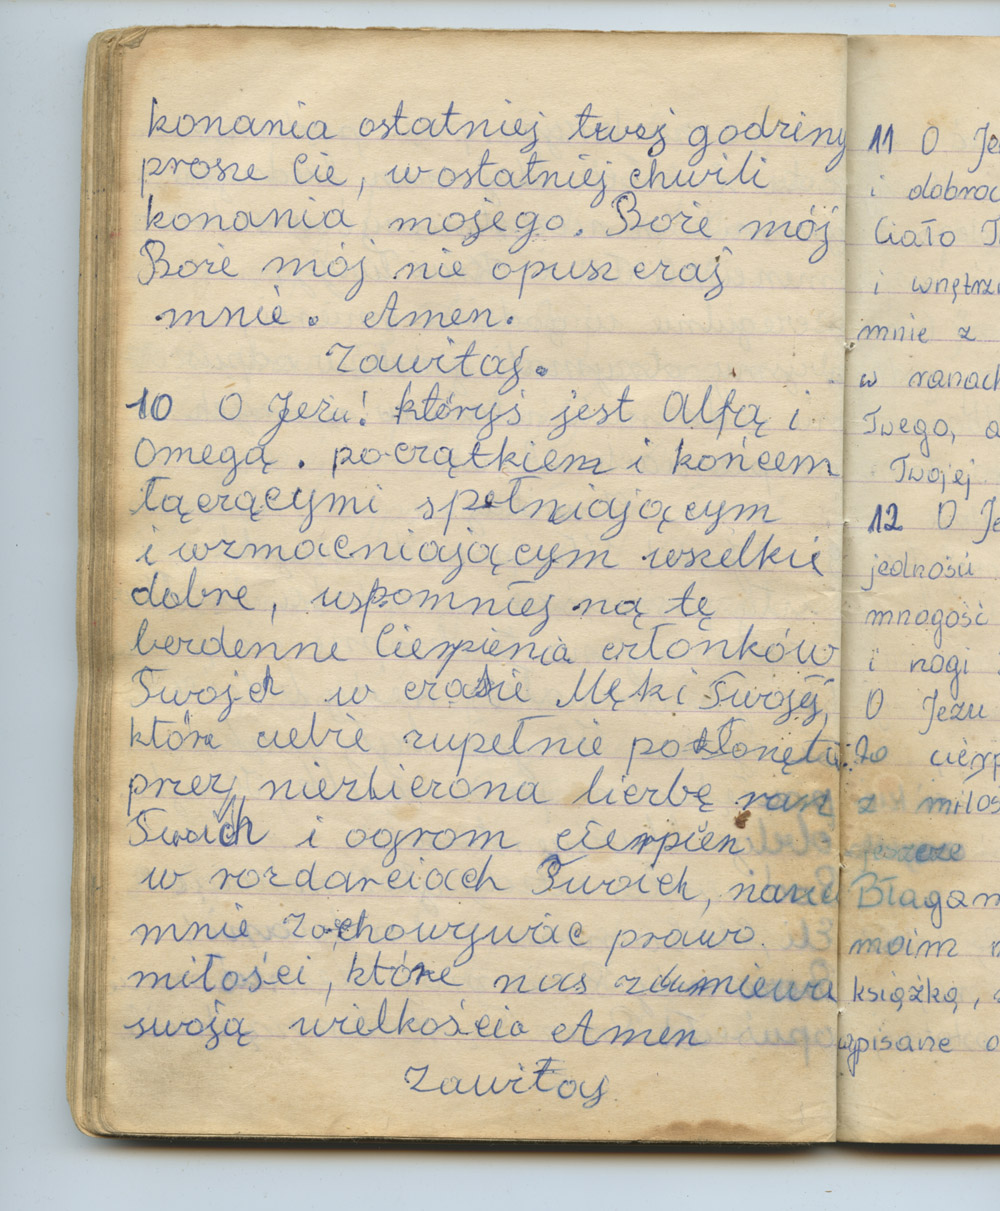 konania ostatniej twej godziny
prosze Cie, w ostatniej chwili
konania mojego. Boże mój
Boże mój nie opuszczaj
mnie. Amen.
Zawitaj.
10 O Jezu! któryś jest Alfą i
Omegą. początkiem i końcem
łączącymi spełniającym
i wzmacniającym wszelkie
dobre, wspomniej na tę
bezdenne Cierpienia członków
Twojch w czasie Męki Twojej,
które ciebie zupełnie
przez niezbierona liczbę ran
Twoich i ogrom cierpien
w rozdarciach Twoich, naucz
mnie zachowywać prawo.
miłości, które nas zdumiewa
swoją wielkościa Amen
Zawitaj
11 O Je
i dobroć
Ciało T
i wnętrz
mnie z
w ranach
Twego, a
Twojej
12 O Je
jedności
mnogość
i nogi
O Jezu
to cierp
z miłoś
jeszcze
Błagam
moim
książkę,
wpisane o